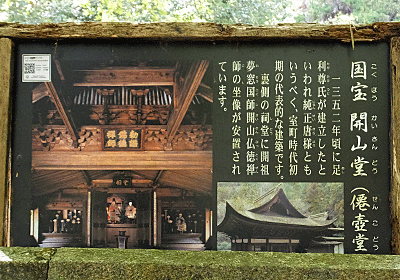 国宝開山堂（僊壺堂
こくほう かいさんどう せんこどう
一三五二年頃に足
利尊氏が建立したと
いわれ純正唐様とも
いうべく、室町時代初
期の代表的な建築です。
裏側の祠堂に開祖
夢窓国師開山仏徳禅
師の坐像が安置され
ています。